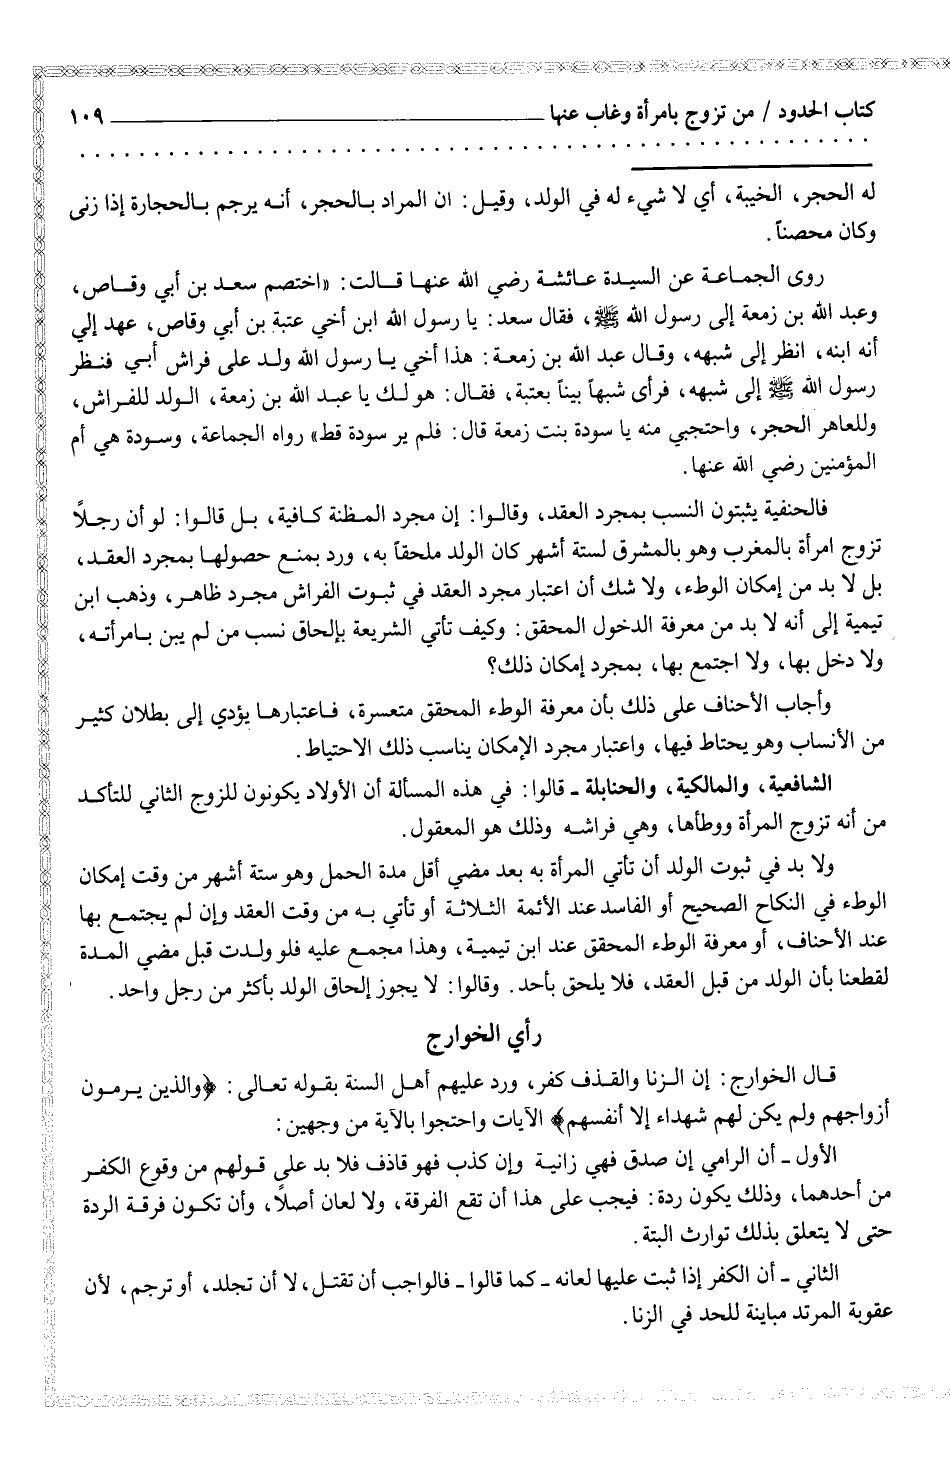 كتاب الحدود / من تزوج بامرأة وغاب عنها ١٠٩
له الحجر، الخيبة، أي لا شيء له في الولد، وقيل: ان المراد بالحجر، أنه يرجم بالحجارة إذا زنى
وكان محصناً.
روى الجماعة عن السيدة عائشة رضي الله عنها قالت: «اختصم سعد بن أبي وقاص،
وعبد الله بن زمعة إلى رسول الله ﷺ، فقال سعد: يا رسول الله ابن أخي عتبة بن أبي وقاص، عهد إلي
أنه ابنه، انظر إلى شبهه، وقال عبد الله بن زمعة: هذا أخي يا رسول الله ولد على فراش أبي فنظر
رسول الله ﷺ إلى شبهه، فرأى شبهاً بيناً بعتبة، فقال: هو لك يا عبد الله بن زمعة، الولد للفراش،
وللعاهر الحجر، واحتجبي منه يا سودة بنت زمعة قال: فلم ير سودة قط» رواه الجماعة، وسودة هي أم
المؤمنين رضي الله عنها.
فالحنفية يثبتون النسب بمجرد العقد، وقالوا: إن مجرد المظنة كافية، بل قالوا: لو أن رجلاً
تزوج امرأة بالمغرب وهو بالمشرق لستة أشهر كان الولد ملحقاً به، ورد بمنع حصولها بمجرد العقد،
بل لا بد من إمكان الوطء، ولا شك أن اعتبار مجرد العقد في ثبوت الفراش مجرد ظاهر، وذهب ابن
تيمية إلى أنه لا بد من معرفة الدخول المحقق: وكيف تأتي الشريعة بإلحاق نسب من لم يبن بامرأته،
ولا دخل بها، ولا اجتمع بها، بمجرد إمكان ذلك؟
وأجاب الأحناف على ذلك بأن معرفة الوطء المحقق متعسرة، فاعتبارها يؤدي إلى بطلان كثير
من الأنساب وهو يحتاط فيها، واعتبار مجرد الإمكان يناسب ذلك الاحتياط.
الشافعية، والمالكية، والحنابلة ـ قالوا: في هذه المسألة أن الأولاد يكونون للزوج الثاني للتأكد
من أنه تزوج المرأة ووطأها، وهي فراشه وذلك هو المعقول.
ولا بد في ثبوت الولد أن تأتي المرأة به بعد مضي أقل مدة الحمل وهو ستة أشهر من وقت إمكان
الوطء في النكاح الصحيح أو الفاسد عند الأئمة الثلاثة أو تأتي به من وقت العقد وإن لم يجتمع بها
عند الأحناف، أو معرفة الوطء المحقق عند ابن تيمية، وهذا مجمع عليه فلو ولدت قبل مضي المدة
لقطعنا بأن الولد من قبل العقد، فلا يلحق بأحد. وقالوا: لا يجوز إلحاق الولد بأكثر من رجل واحد.
رأي الخوارج
قال الخوارج: إن الزنا والقذف كفر، ورد عليهم أهل السنة بقوله تعالى: ﴿والذين يرمون
أزواجهم ولم يكن لهم شهداء إلا أنفسهم﴾ الآيات واحتجوا بالآية من وجهين:
الأول ـ أن الرامي إن صدق فهي زانية وإن كذب فهو قاذف فلا بد على قولهم من وقوع الكفر
من أحدهما، وذلك يكون ردة: فيجب على هذا أن تقع الفرقة، ولا لعان أصلاً، وأن تكون فرقة الردة
حتى لا يتعلق بذلك توارث البتة.
الثاني ـ أن الكفر إذا ثبت عليها لعانه ـ كما قالوا ـ فالواجب أن تقتل، لا أن تجلد، أو ترجم، لأن
عقوبة المرتد مباينة للحد في الزنا.